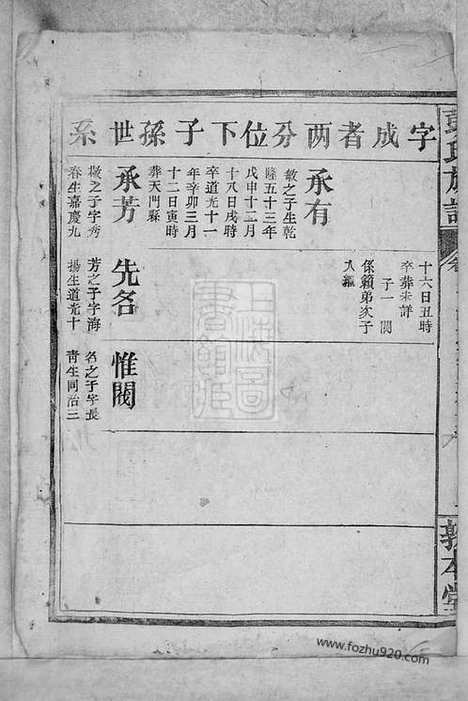 字成者两分位下子孫世系
承有
敏之子生乾
隆五十三年
戊申十二月
十八日戌時
卒道光十一
年辛卯三月
十二日寅時
葬天門縣
承芳
敏之子字秀
春生嘉慶九
十六日丑時
卒葬未詳
子一 閱
係賴弟次子
入繼
先名
芳之子字海
揚生道光十
惟閱
名之子字長
青生同治三
氏族譜
敦本堂
www.fozhu920.com